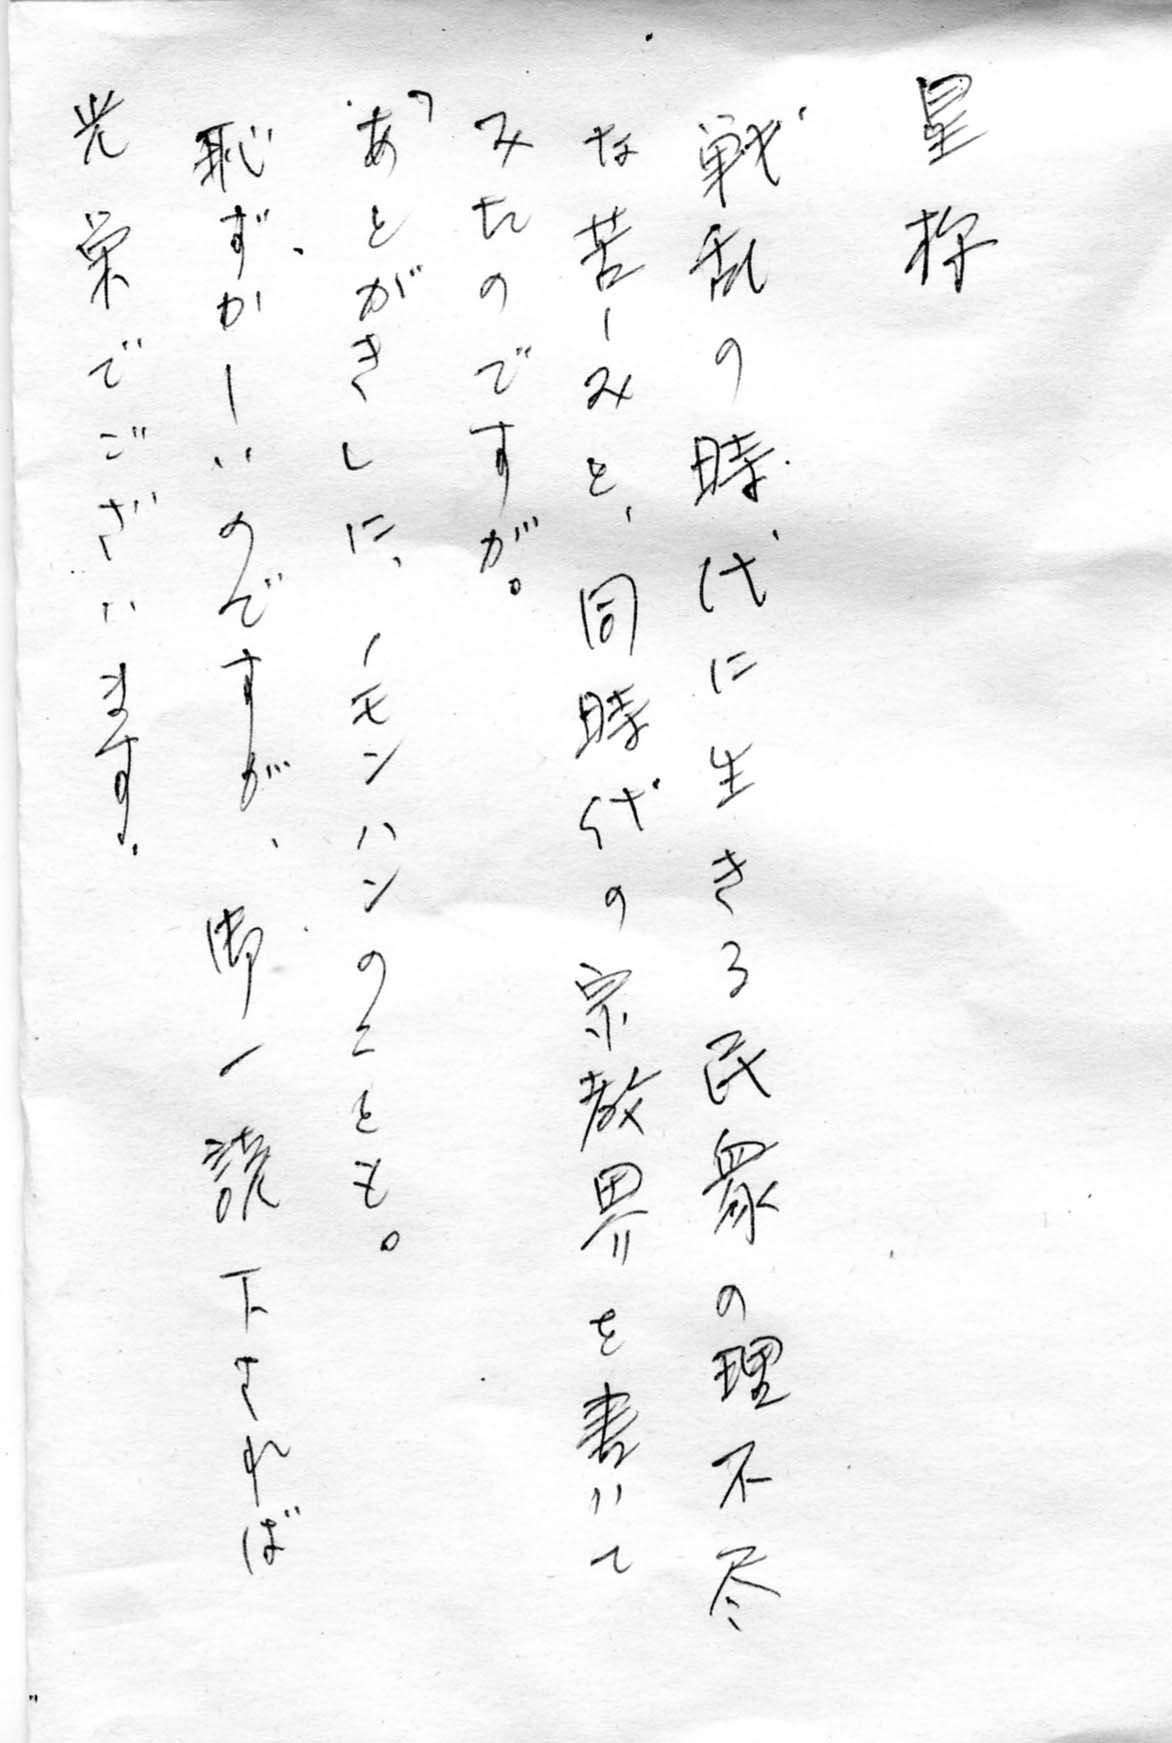 戦乱の時代に生きる民衆の理不尽
な苦しみと、同時代の宗教界を書いて
みたのですが。
「あとがき」に、ノモンハンのことも。
恥ずかしいのですが、御一読下されば
光栄でございます。